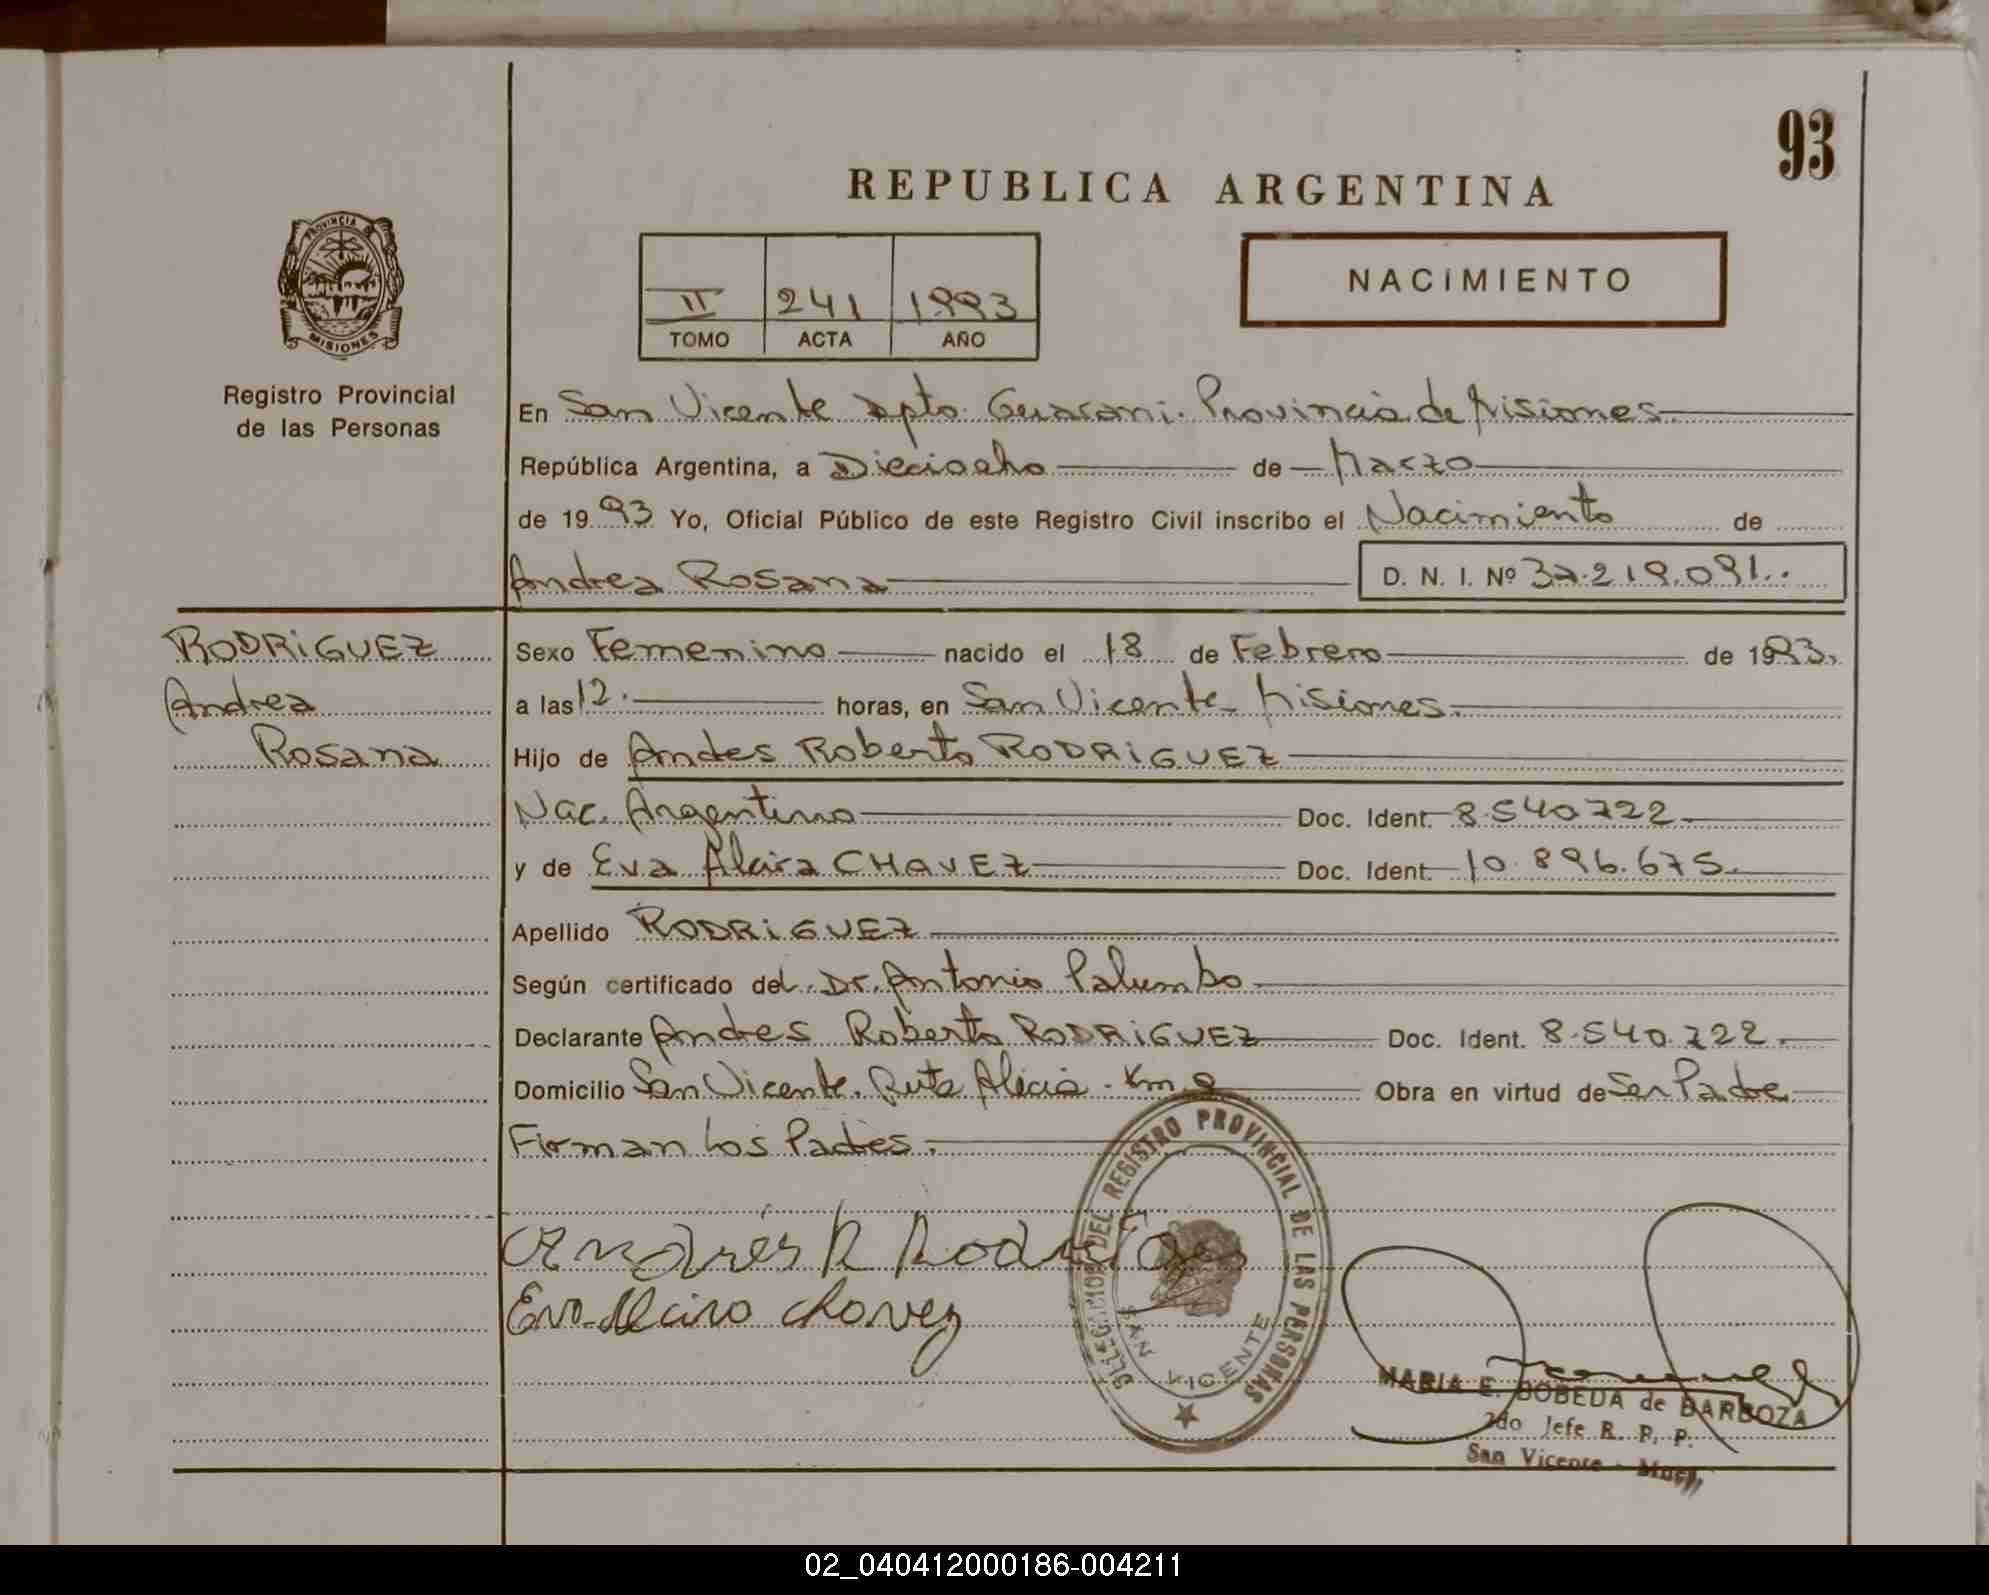 93
REPUBLICA ARGENTINA
PROVINCIA DE
MISIONES
Registro Provincial
de las Personas
II 241 1993
TOMO ACTA AÑO
NACIMIENTO
En San Vicente Dpto. Guarani. Provincia de Misiones.
República Argentina, a Dieciocho de Marzo
de 1993 Yo, Oficial Público de este Registro Civil inscribo el Nacimiento de
Andrea Rosana D. N. I. Nº 37.219.091..
RODRIGUEZ
Andrea
Rosana
Sexo Femenino nacido el 18 de Febrero de 1993.
a las 12. horas, en San Vicente - Misiones.
Hijo de Andes Roberto RODRIGUEZ
Nac. Argentino Doc. Ident. 8.540.722.
y de Eva Alcira CHAVEZ Doc. Ident. 10.896.675.
Apellido RODRIGUEZ
Según certificado del Dr. Antonio Palumbo
Declarante Andres Roberto RODRIGUEZ Doc. Ident. 8.540.722.
Domicilio San Vicente. Ruta Alicia. Km 9 Obra en virtud de Ser Padre
Firman los Padres.
Andrés R Rodriguez
Eva Alcira Chavez
DEL REGISTRO PROVINCIAL DE LAS PERSONAS
SAN VICENTE
MARIA E. BOBEDA de BARBOZA
2do Jefe R. P. P.
San Vicente - Mnes.
02_040412000186-004211